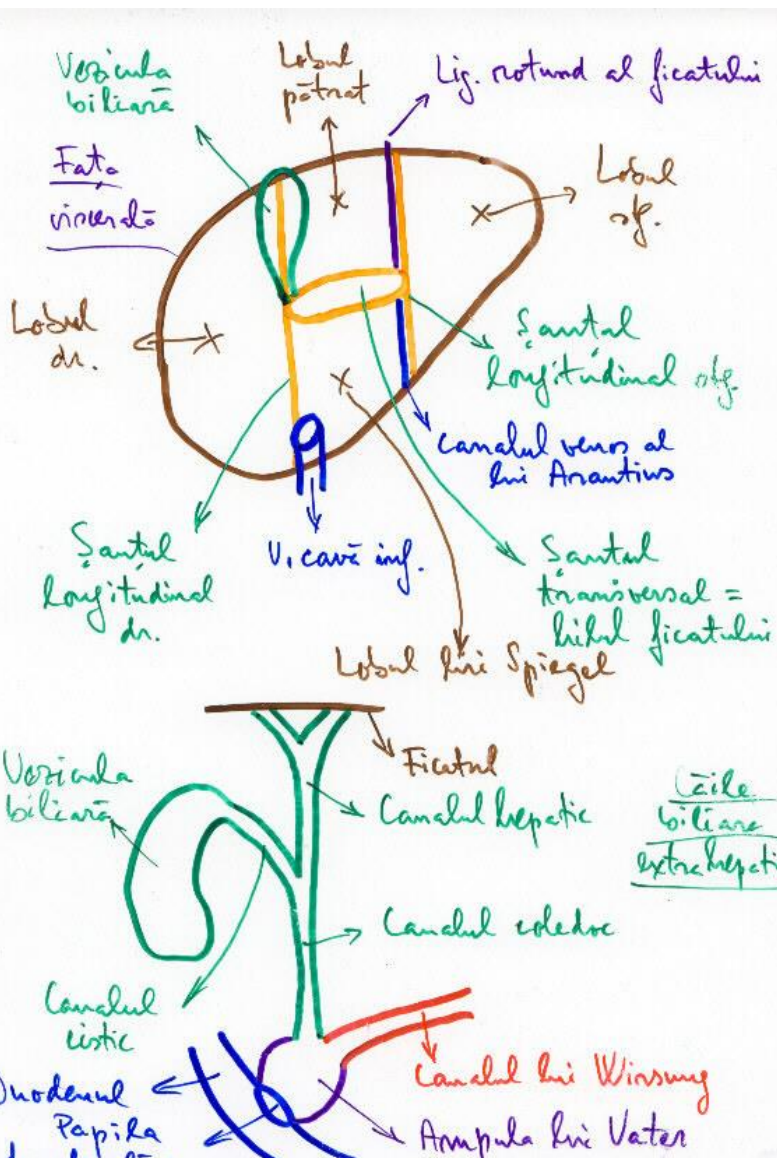 Vezicula
biliară
Lobul
pătrat
Lig. rotund al ficatului
Fața
viscerală
Lobul
stg.
Lobul
dr.
Șanțul
longitudinal stg.
canalul venos al
lui Arantius
Șanțul
longitudinal
dr.
V. cavă inf.
Șanțul
transversal =
hilul ficatului
Lobul lui Spiegel
Ficatul
Vezicula
biliară
Canalul hepatic
Căile
biliare
extrahepati
Canalul coledoc
Canalul
cistic
Canalul lui Wirsung
Duodenul
Papila
Ampula lui Vater